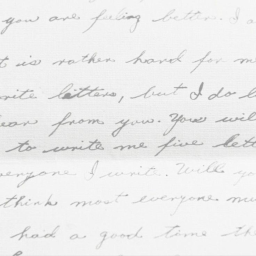 you are feeling better. I a
t is rather hard for me
rite letters, but I do l
ear from you. You will
to write me five lett
everyone I write. Will yo
think most everyone mu
had a good time th